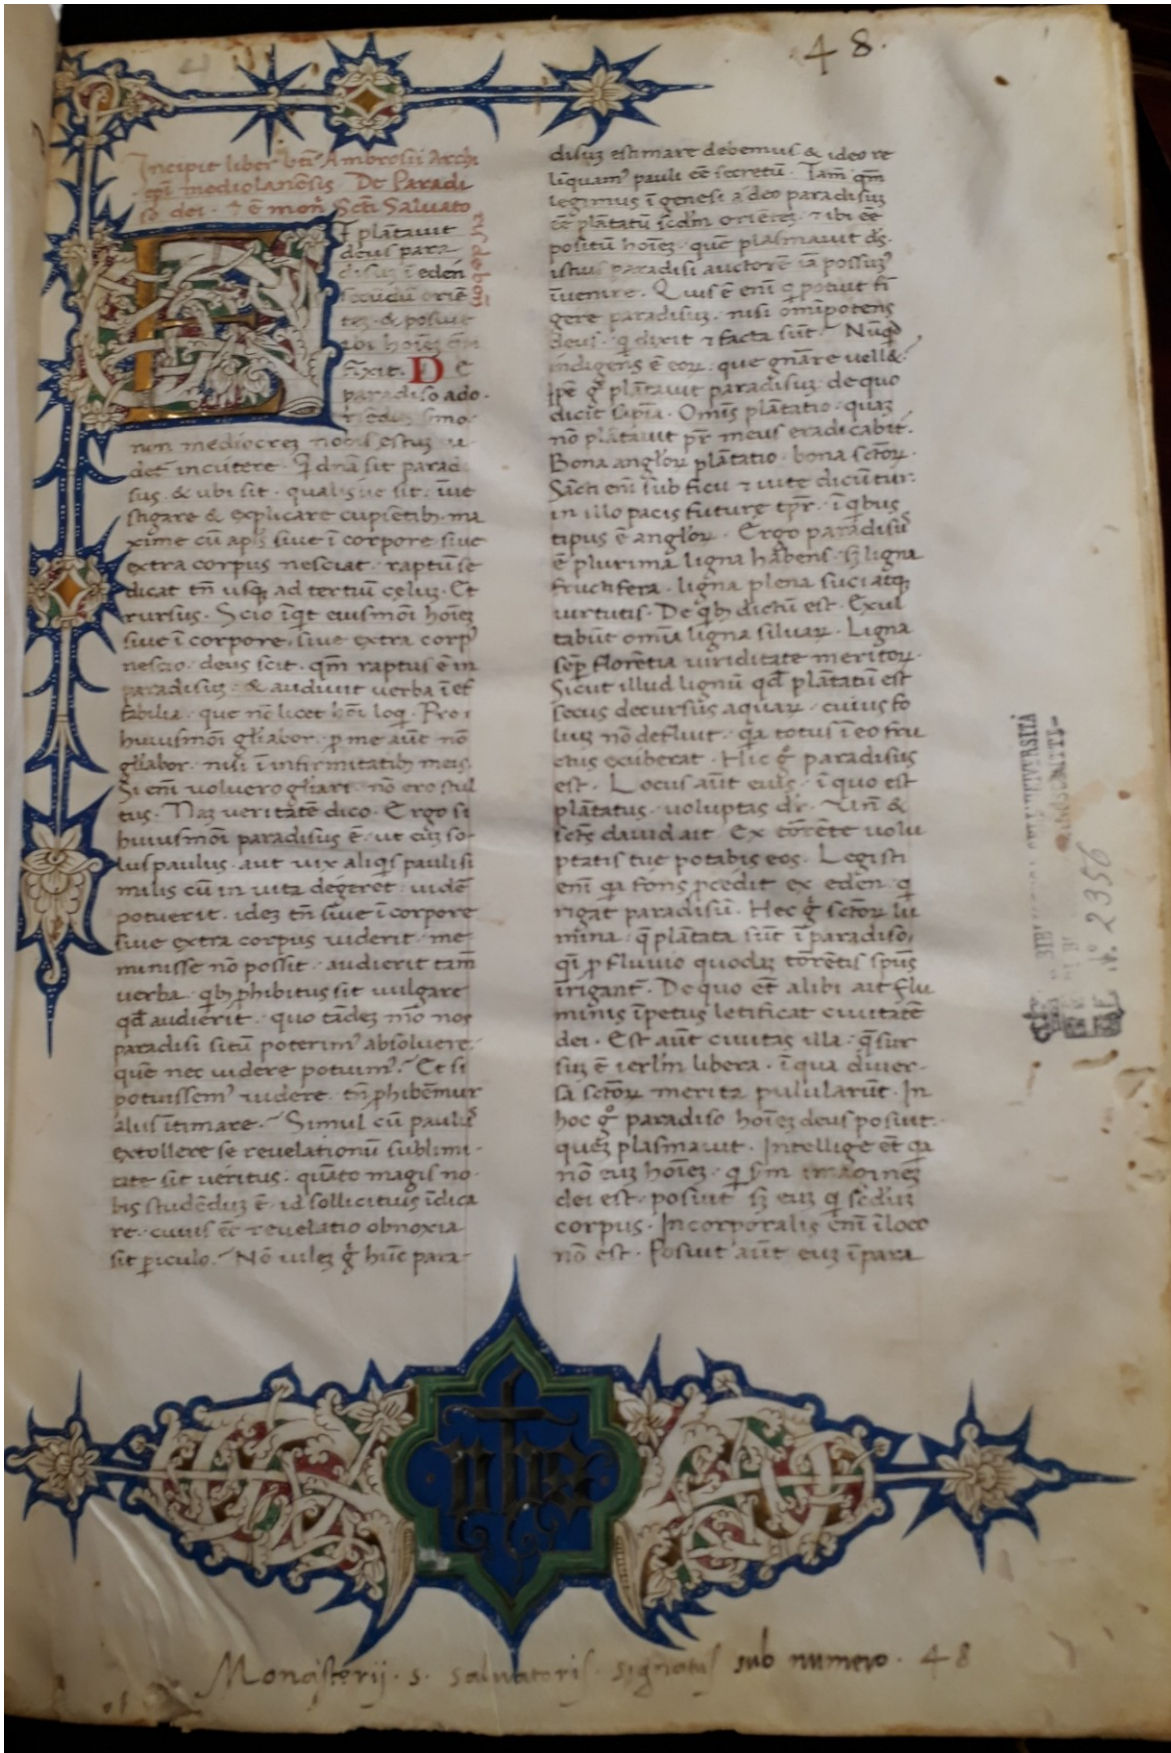 48.
Incipit liber bti Ambrosii Archi
epi mediolanēsis De Paradi
so dei · ⁊ ē mon̄ Scti Saluato
ris de bon̄
Et plātauit
deus para
disuʒ ī eden
secūdū oriē
teʒ · & posuit
ibi hoīeʒ quē
fīxit. De
paradiso ado
riēdus smo
non mediocreʒ nobis estuʒ ui
det̄ incutere · Qd nā sit paradi
sus · & ubi sit · qualis ue sit · īue
stigare & explicare cupiētibꝫ · ma
xime cū apl̄s siue ī corpore siue
extra corpus nesciat · raptū se
dicat tn̄ usqꝫ ad tertiū celuʒ · Et
rursus · Scio īqt eiusmōi hoīeʒ
siue ī corpore · siue extra corpꝰ
nescio · deus scit · qm̄ raptus ē in
paradisuʒ · & audiuit uerba īef
fabilia · que nō licet hōi loqi · Pro
huiusmōi gl̄iabor · ꝓ me aūt nō
gl̄iabor · nisi ī infirmitatibꝫ meis
Si em̄ uoluero gl̄iari · nō ero stul
tus · Naʒ ueritatē dico · Ergo si
huiusmōi paradisus ē · ut euʒ so
lus paulus · aut uix aliqs pauli si
milis cū in uita degeret · uidē
potuerit · ideʒ tn̄ siue ī corpore
siue extra corpus uiderit · me
minisse nō possit · audierit tam̄
uerba · qbꝫ ꝓhibitus sit uulgare
qd̄ audierit · quo tādeʒ mō nos
paradisi sitū poterimꝰ absoluere
quē nec uidere potuimꝰ · Et si
potuissemꝰ uidere · tn̄ ꝓhibemur
alijs ītimare · Simul cū paulꝰ
extollere se reuelationū sublimi
tate sit ueritus · quāto magis no
bis studēduʒ ē · id sollicitius īdica
re · cuius eē reuelatio obnoxia
sit piculo · Nō uileʒ gͦ hūc para
disuʒ estimare debemus & ideo re
linquamꝰ pauli eē secretū · Tam̄ qm̄
legimus ī genesi a deo paradisuʒ
eē plātatū scd̄m oriēteʒ · ⁊ ibi eē
positū hoīeʒ · quē plasmauit ds̄ ·
istius paradisi auctorē iā possuʒꝰ
īuenire · Quis ē em̄ q̄ potuit fī
gere paradisuʒ · nisi omīpotens
deus · q̄ dixit ⁊ facta sūt · Nūqͣ
indigens ē eoꝝ · que gnāre uell&.
Ipē gͦ plātauit paradisuʒ · de quo
dicit sapīa · Omīs plātatio · quaʒ
nō plātauit pr̄ meus eradicabit̄.
Bona angl̄oꝝ plātatio · bona sctoꝝ ·
Sācti em̄ sub ficu ⁊ uite dicūtur
in illo pacis future tp̄r · ī qbus
tipus ē angl̄oꝝ · Ergo paradisuꝰ
ē plurima ligna habens · sꝫ ligna
fructifera · ligna plena suci atqꝫ
uirtutis · De qbꝫ dictū est · Exul
tabūt omīa ligna siluaꝝ · Ligna
sep̄ florētia uiriditate meritoꝝ ·
Sicut illud lignū qd̄ plātatū est
secus decursus aquaꝝ · cuius fo
liuʒ nō defluit · qa totus ī eo fru
ctus exuberat · Hic gͦ paradisus
est · Locus aūt eius · ī quo est
plātatus · uoluptas dr̄ · Vn̄ &
sctꝰ dauid ait · Ex torēte uolu
ptatis tue potabis eos · Legisti
em̄ qa fons ꝓcedit ex eden · q̄
rigat paradisū · Hec gͦ sctoꝝ lu
mina · q̄ plātata sūt ī paradiso,
qͣi ꝓ fluuio quodaʒ torētis spūs
irrigant · De quo et̄ alibi ait · Flu
minis īpetus letificat ciuitatē
dei · Est aūt ciuitas illa · q̄ sur
suʒ ē ierl̄m libera · ī qua diuer
sa sctoꝝ merita pulularūt · In
hoc gͦ paradiso hoīeʒ deus posuit ·
queʒ plasmauit · Intellige et̄ qa
nō euʒ hoīeʒ · q̄ scd̄m imagineʒ
dei est · posuit · sꝫ euʒ q̄ scd̄uʒ
corpus · Incorporalis em̄ ī loco
nō est · Posuit aūt euʒ ī para
yhs
N.º 2356
Monasterij · s · saluatoris · signatus sub numero · 48